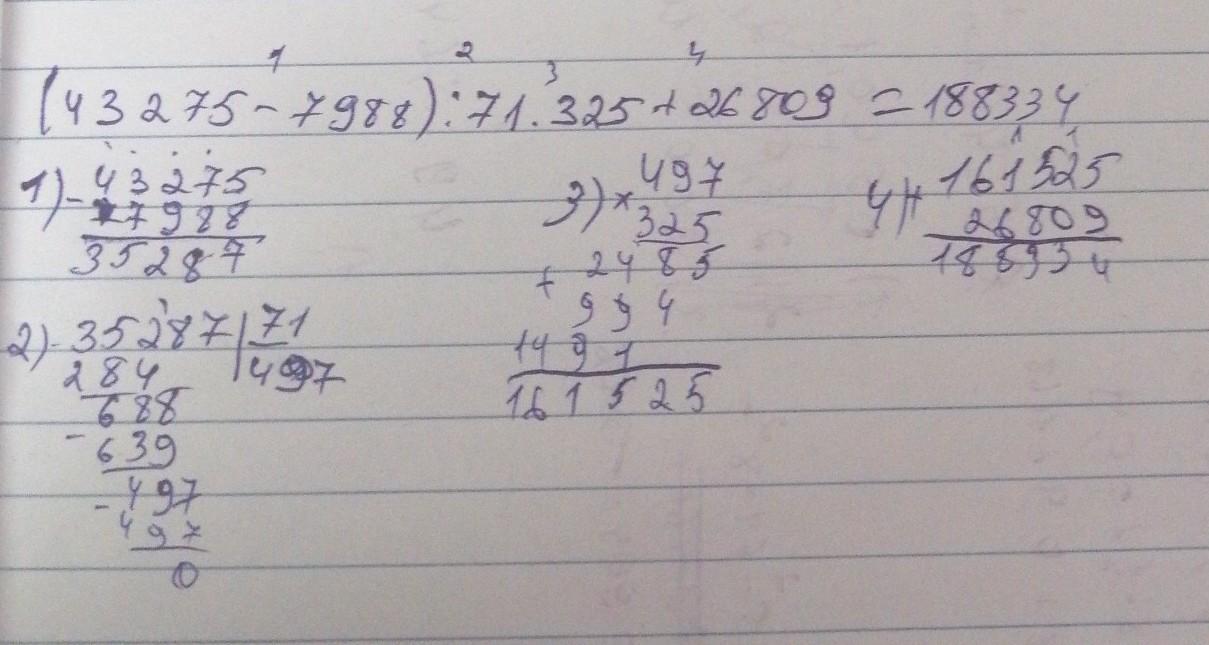 1 2 3 4
(43275-7988):71.325+26809=188334
1)-43275
7988
35287
2)-35287|71
284 |497
688
-639
-497
497
0
3)×497
325
+2485
994
1491
161525
1 1
4)+161525
26809
188334